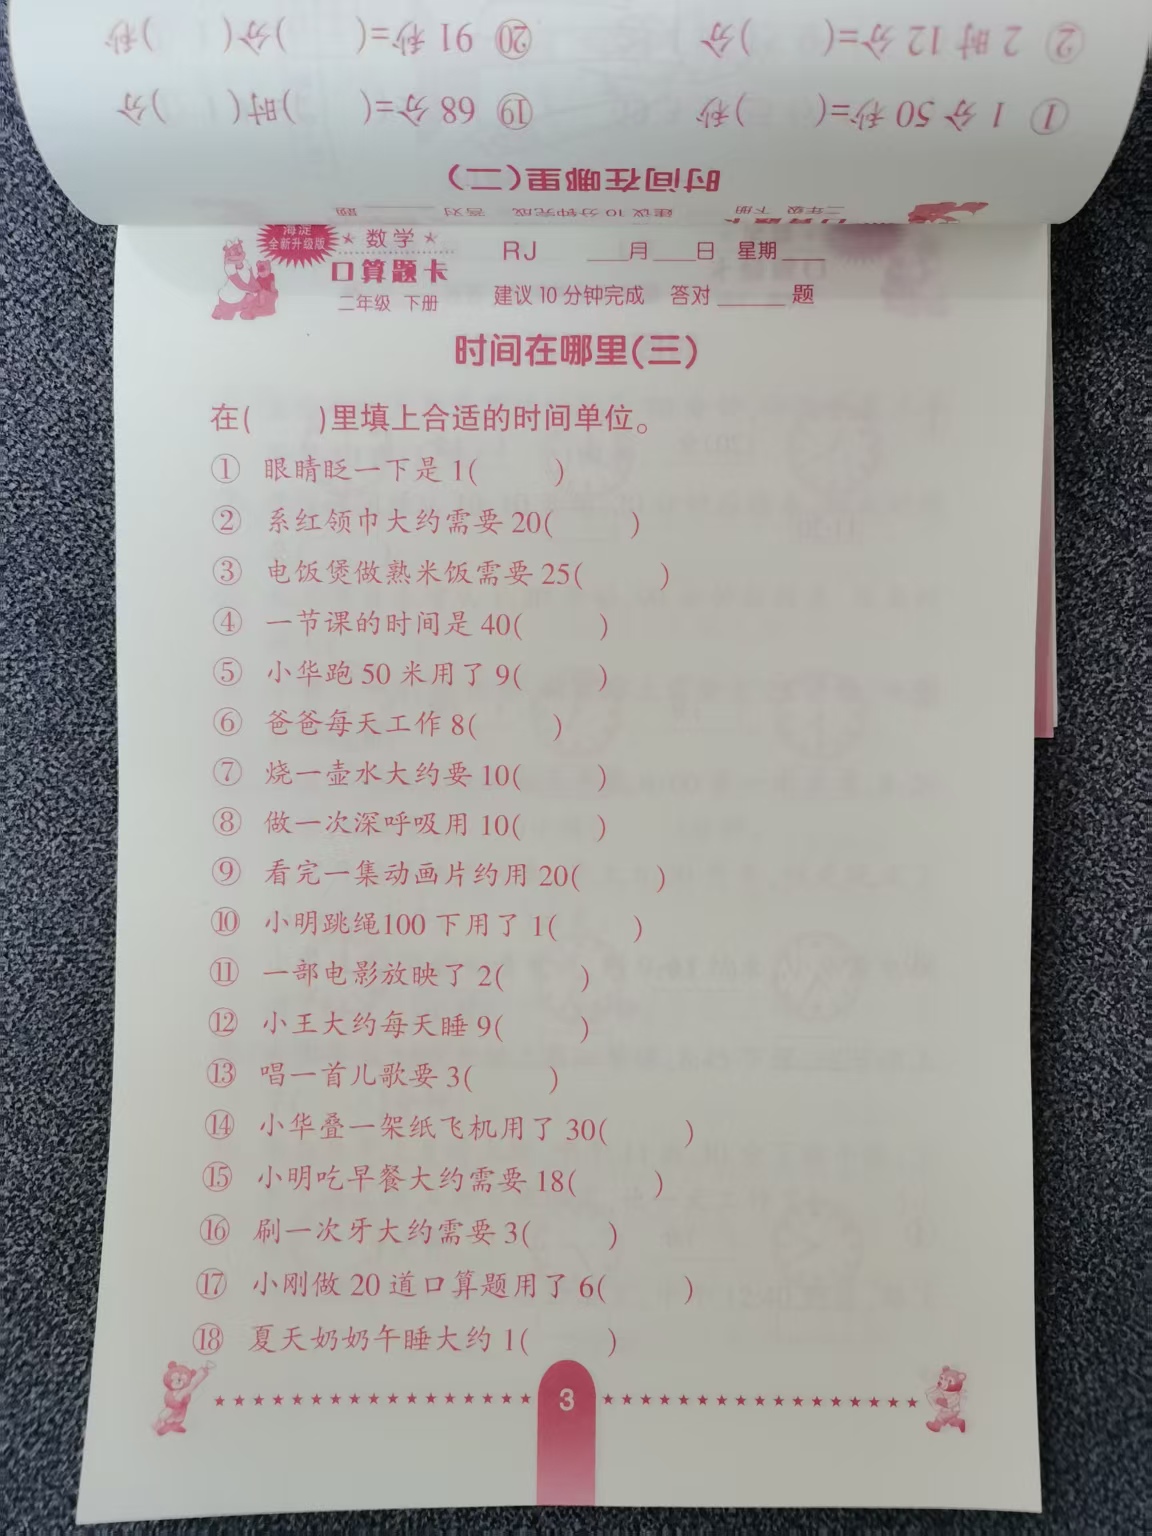 ② 2 时 12 分=(　　)分　⑳ 91 秒=(　　)分(　　)秒
① 1 分 50 秒=(　　)秒　⑲ 68 分=(　　)时(　　)分
时间在哪里(二)
建议 10 分钟完成　答对______题
二年级 下册
海淀
全新升级版
★ 数学 ★
口算题卡
二年级 下册
RJ ___月___日 星期___
建议 10 分钟完成　答对______题
时间在哪里(三)
在(　　)里填上合适的时间单位。
① 眼睛眨一下是 1(　　)
② 系红领巾大约需要 20(　　)
③ 电饭煲做熟米饭需要 25(　　)
④ 一节课的时间是 40(　　)
⑤ 小华跑 50 米用了 9(　　)
⑥ 爸爸每天工作 8(　　)
⑦ 烧一壶水大约要 10(　　)
⑧ 做一次深呼吸用 10(　　)
⑨ 看完一集动画片约用 20(　　)
⑩ 小明跳绳100 下用了 1(　　)
⑪ 一部电影放映了 2(　　)
⑫ 小王大约每天睡 9(　　)
⑬ 唱一首儿歌要 3(　　)
⑭ 小华叠一架纸飞机用了 30(　　)
⑮ 小明吃早餐大约需要 18(　　)
⑯ 刷一次牙大约需要 3(　　)
⑰ 小刚做 20 道口算题用了 6(　　)
⑱ 夏天奶奶午睡大约 1(　　)
3